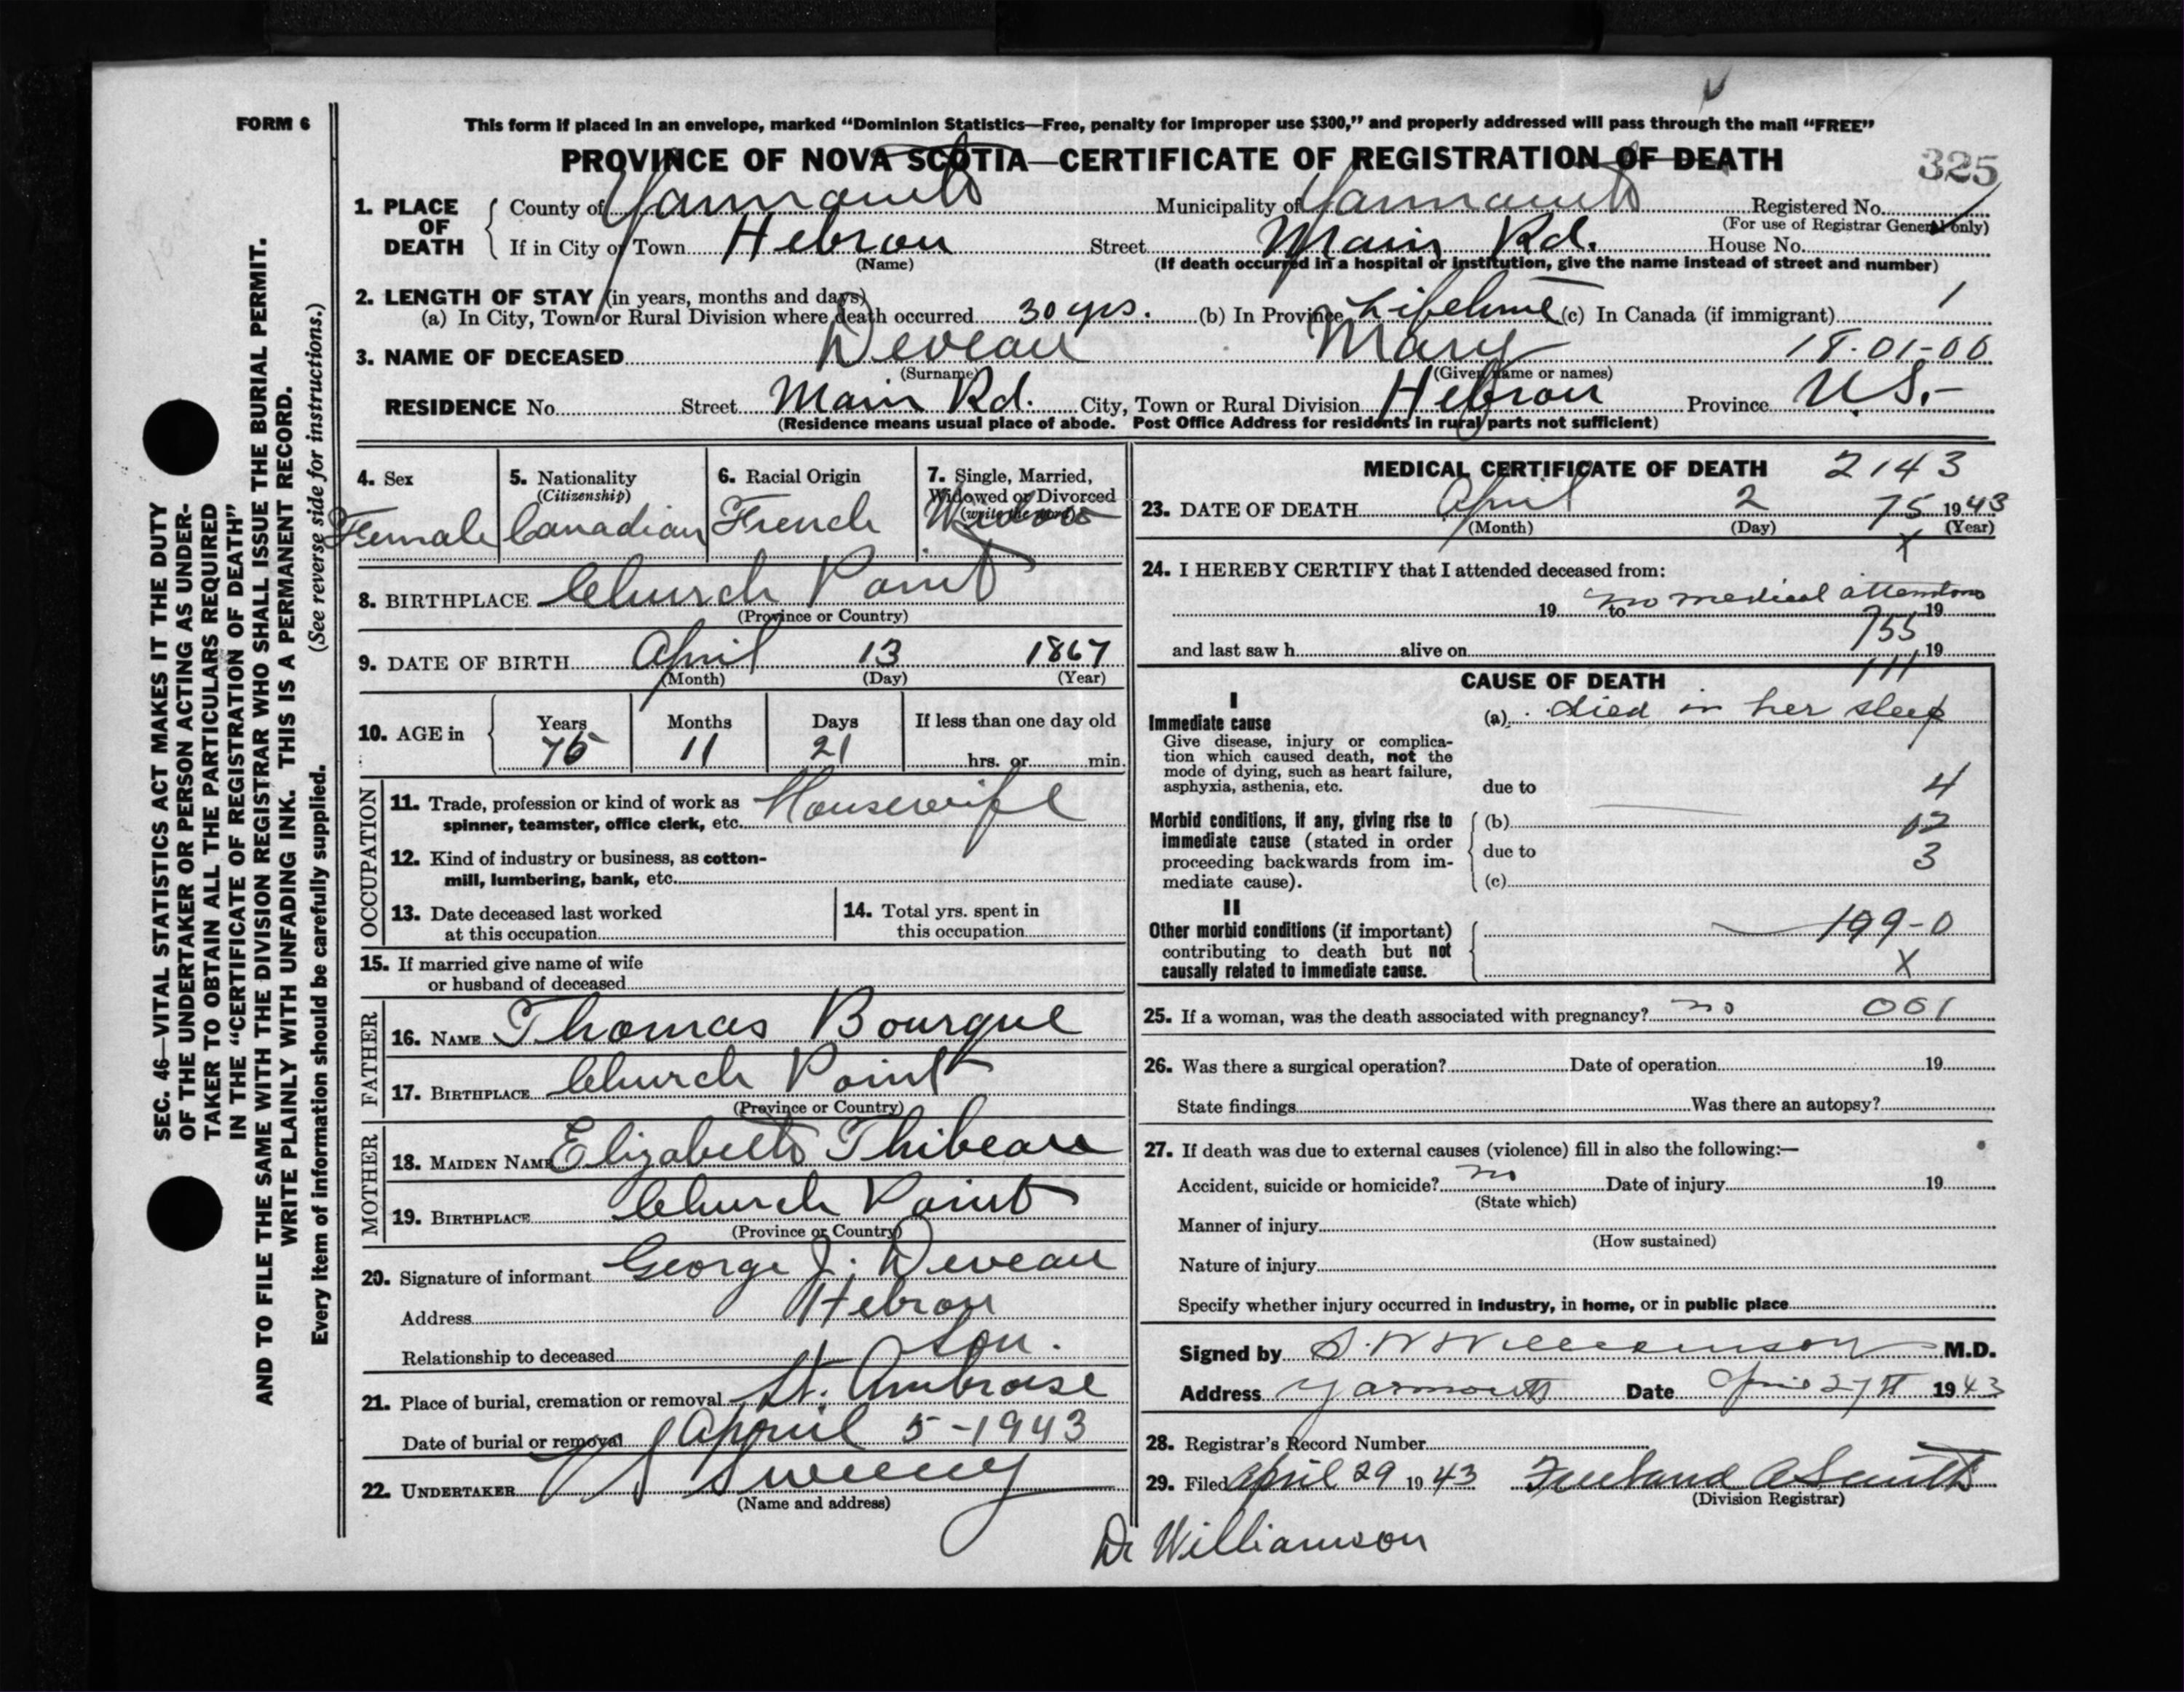 FORM 6
This form if placed in an envelope, marked “Dominion Statistics—Free, penalty for improper use $300,” and properly addressed will pass through the mail “FREE”
PROVINCE OF NOVA SCOTIA—CERTIFICATE OF REGISTRATION OF DEATH
325
1. PLACE OF DEATH
County of Yarmouth Municipality of Yarmouth Registered No.
(For use of Registrar General only)
If in City or Town Hebron Street Main Rd. House No.
(Name) (If death occurred in a hospital or institution, give the name instead of street and number)
2. LENGTH OF STAY (in years, months and days)
(a) In City, Town or Rural Division where death occurred 30 yrs. (b) In Province Lifetime (c) In Canada (if immigrant) 1
3. NAME OF DECEASED Deveau Mary 18-01-00
(Surname) (Given name or names)
RESIDENCE No. Street Main Rd. City, Town or Rural Division Hebron Province N.S.
(Residence means usual place of abode. Post Office Address for residents in rural parts not sufficient)
4. Sex Female
5. Nationality (Citizenship) Canadian
6. Racial Origin French
7. Single, Married, Widowed or Divorced (write the word) Widow
8. BIRTHPLACE Church Point
(Province or Country)
9. DATE OF BIRTH April 13 1867
(Month) (Day) (Year)
10. AGE in Years Months Days If less than one day old
75 11 21 hrs. or min.
OCCUPATION
11. Trade, profession or kind of work as Housewife
spinner, teamster, office clerk, etc.
12. Kind of industry or business, as cotton-
mill, lumbering, bank, etc.
13. Date deceased last worked
at this occupation
14. Total yrs. spent in
this occupation
15. If married give name of wife
or husband of deceased
FATHER
16. NAME Thomas Bourque
17. BIRTHPLACE Church Point
(Province or Country)
MOTHER
18. MAIDEN NAME Elizabeth Thibeau
19. BIRTHPLACE Church Point
(Province or Country)
20. Signature of informant George J. Deveau
Address Hebron
Relationship to deceased Son.
21. Place of burial, cremation or removal St. Ambroise
Date of burial or removal April 5-1943
22. UNDERTAKER V S Sweeny
(Name and address)
MEDICAL CERTIFICATE OF DEATH 2143
23. DATE OF DEATH April 2 75 1943
(Month) (Day) (Year)
X
24. I HEREBY CERTIFY that I attended deceased from:
19 to no medical attention 19
755
and last saw h alive on 19
111
CAUSE OF DEATH
I
Immediate cause (a) died in her sleep
Give disease, injury or complica-
tion which caused death, not the
mode of dying, such as heart failure,
asphyxia, asthenia, etc. due to 4
Morbid conditions, if any, giving rise to (b) 12
immediate cause (stated in order due to 3
proceeding backwards from im-
mediate cause). (c)
II
Other morbid conditions (if important) 199-0
contributing to death but not
causally related to immediate cause. X
25. If a woman, was the death associated with pregnancy? no 001
26. Was there a surgical operation? Date of operation 19
State findings Was there an autopsy?
27. If death was due to external causes (violence) fill in also the following:—
Accident, suicide or homicide? no Date of injury 19
(State which)
Manner of injury
(How sustained)
Nature of injury
Specify whether injury occurred in industry, in home, or in public place
Signed by S. W Williamson M.D.
Address Yarmouth Date April 27th 1943
28. Registrar's Record Number
29. Filed April 29 1943 Freeland A Smith
(Division Registrar)
Dr Williamson
SEC. 46—VITAL STATISTICS ACT MAKES IT THE DUTY
OF THE UNDERTAKER OR PERSON ACTING AS UNDER-
TAKER TO OBTAIN ALL THE PARTICULARS REQUIRED
IN THE “CERTIFICATE OF REGISTRATION OF DEATH”
AND TO FILE THE SAME WITH THE DIVISION REGISTRAR WHO SHALL ISSUE THE BURIAL PERMIT.
WRITE PLAINLY WITH UNFADING INK. THIS IS A PERMANENT RECORD.
Every item of information should be carefully supplied. (See reverse side for instructions.)